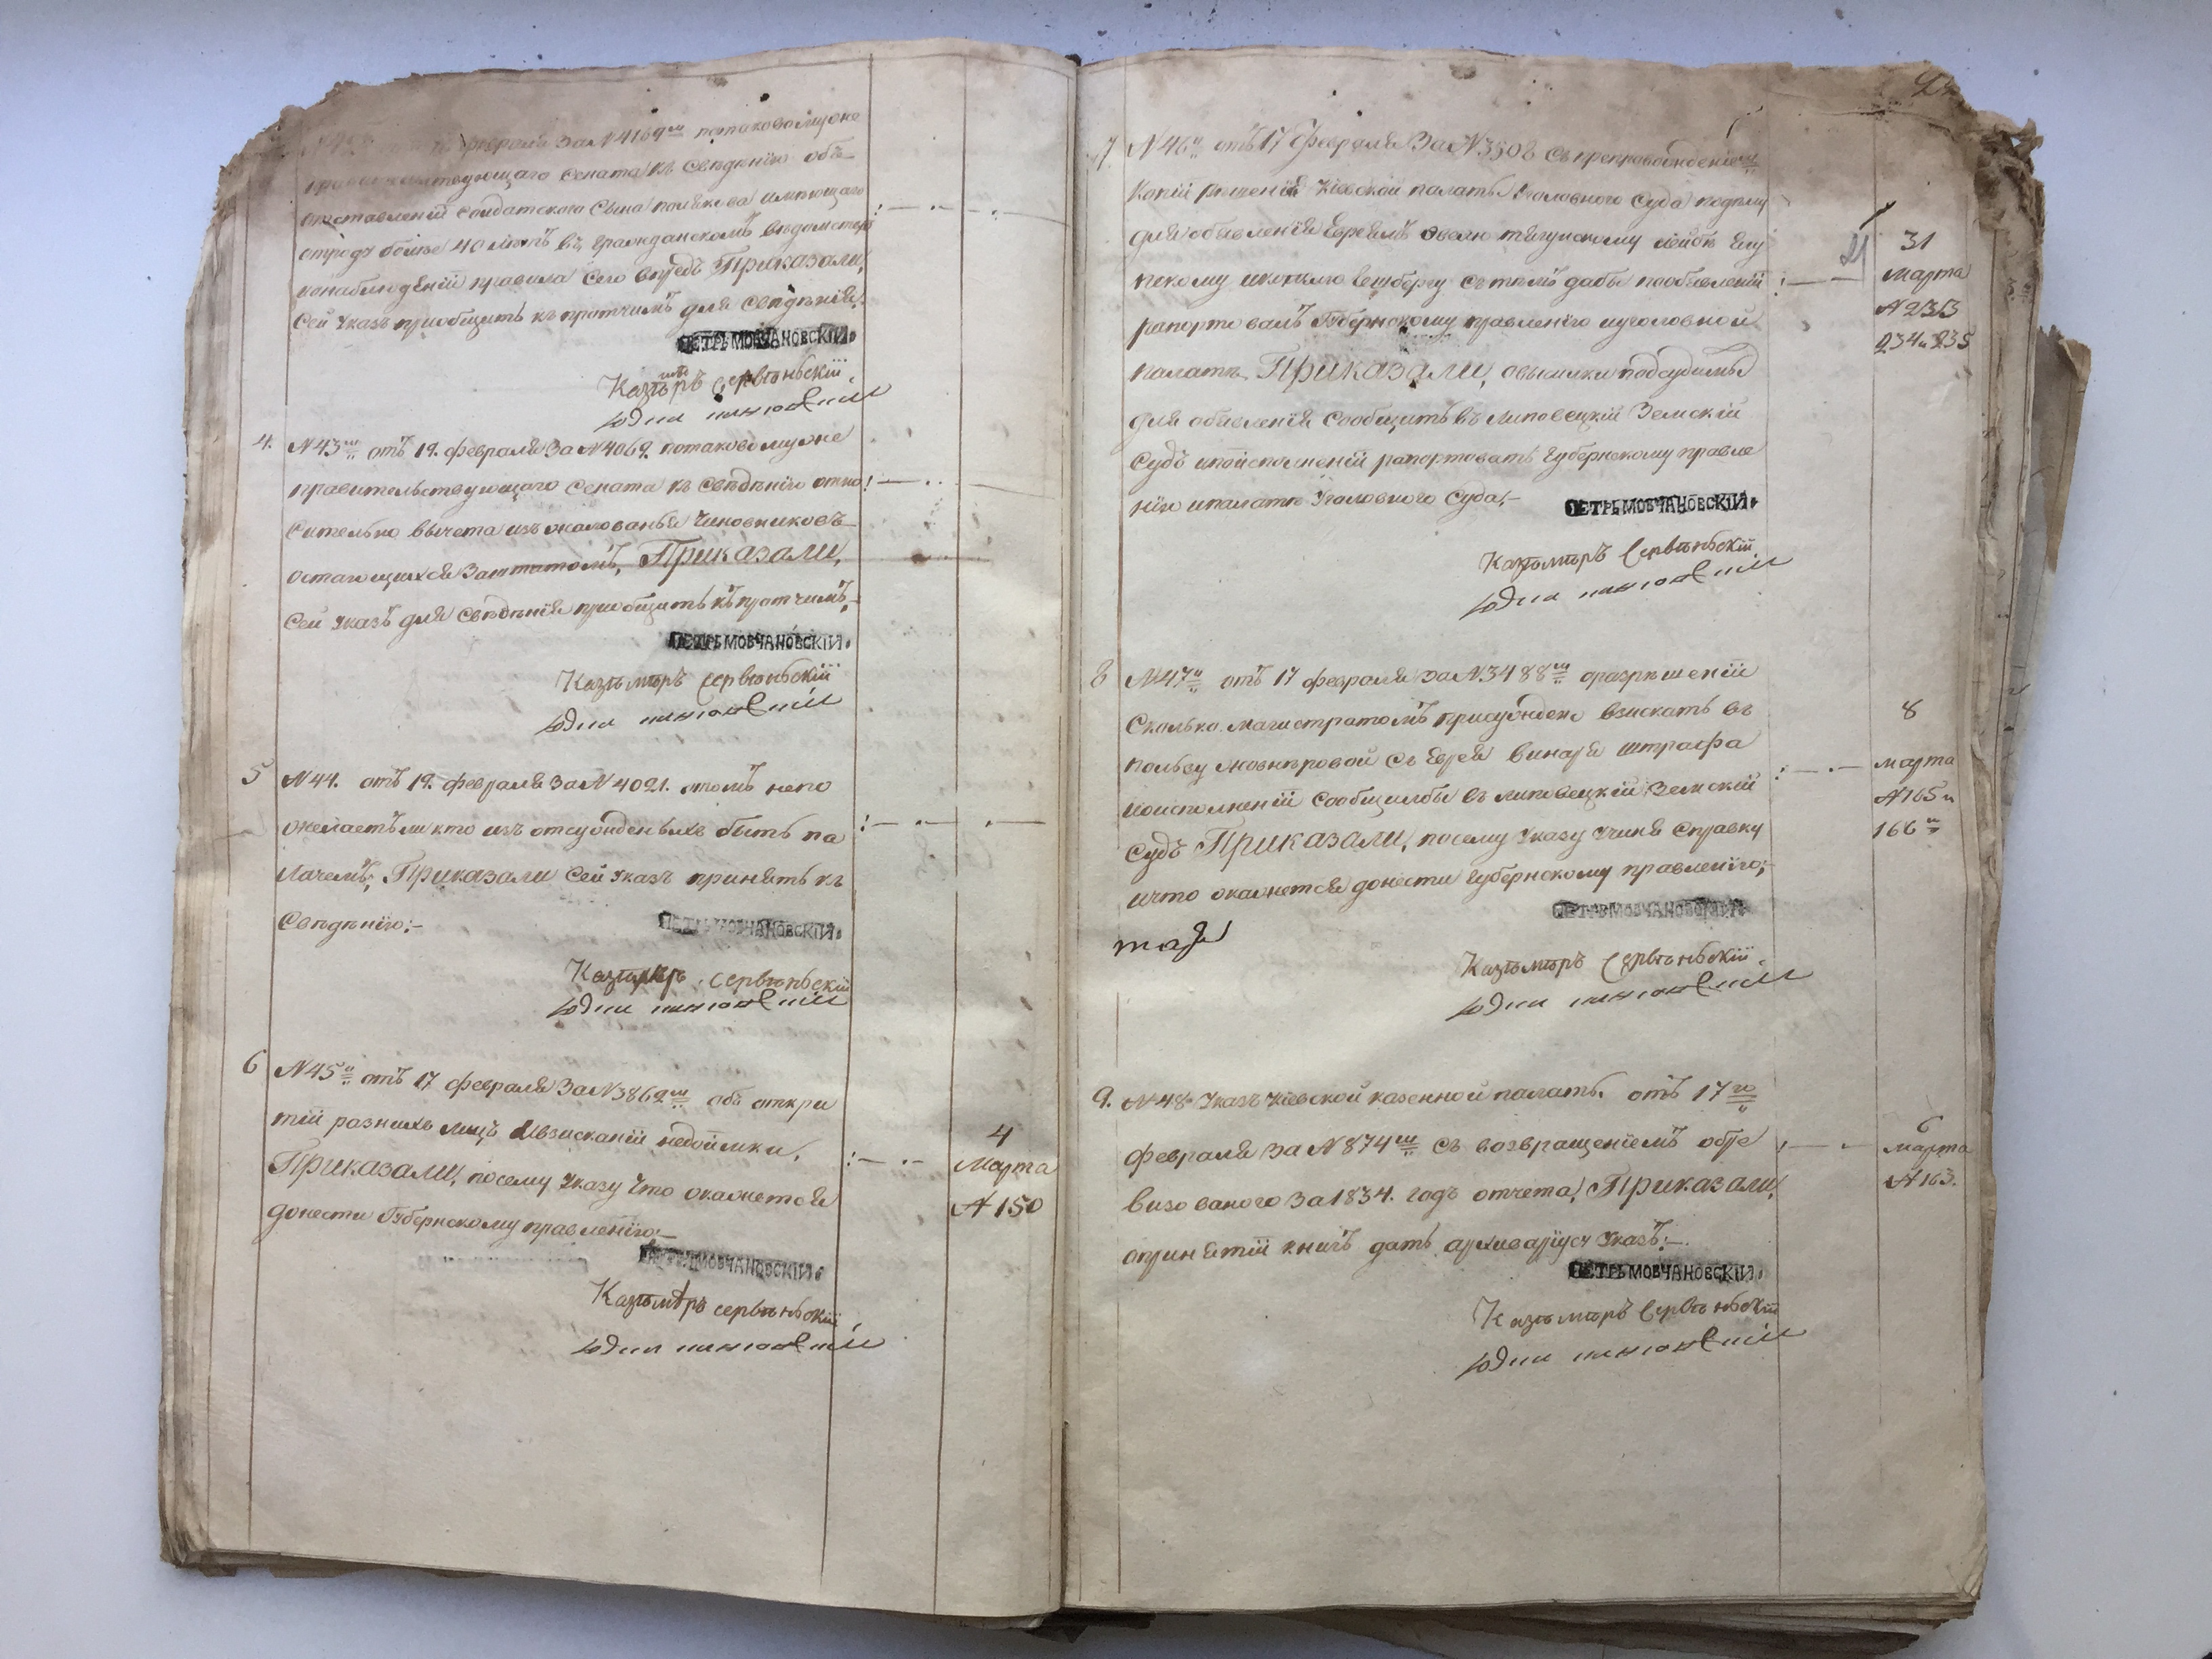 февраля За N 4169ш потаковомуже
правительствующаго Сената къ Сведѣнію объ
отставленій солдатского Сына полякова имѣющаго
отроду болѣе 40 лѣтъ въ гражданскомъ вѣдомстве
и онаблюдѣній правила сего впредь Приказали,
Сей Указъ приобщить къ протчимъ для свѣдѣнія.
ПЕТРЪ МОВЧАНОВСКІЙ
Казѣмѣръ Сервѣньскій
4. N 43ш отъ 19. февраля За N 4069. потаковомуже
правительствующаго Сената къ Свѣдѣнію отно
сительно вычета изъ жалованья Чиновниковъ
остающихся Заштатомъ, Приказали,
Сей Указъ для Свѣдѣнія приобщить къ протчимъ,
ПЕТРЪ МОВЧАНОВСКІЙ
Казѣмѣръ Сервѣньскій
5 N 44. отъ 19. февраля За N 4021. отомъ непо
желаетъ ли кто изъ отсужденыхъ быть па
лачемъ; Приказали Сей Указъ принять къ
Свѣдѣнію:-
ПЕТРЪ МОВЧАНОВСКІЙ
Казѣмѣръ Сервѣньскій
6 N 45й отъ 17 февраля За N 3869ш объ откри
тій разнихъ лицъ Ивзисканій недоимки,
Приказали, посему Указу Что окажется
донести Губернскому правленію:-
4
Марта
N 150
ПЕТРЪ МОВЧАНОВСКІЙ
Казѣмѣръ Сервѣньскій
7 N 46й отъ 17 февраля За N 3508 Съ препровождениемъ
Копій рѣшенія Кіевской палаты Уголовного Суда подѣлу
для обявленія Евреямъ
рапортовалъ Губернскому правленію иуголовной
палатѣ Приказали, овысилки подсудимы
для обявленія Сообщить въ Липовецкій Земскій
Судъ ипоисполненій рапортовать Губернскому правле
нію ипалатѣ Уголовного Суда,-
21
31
Марта
N 233
234 и 235
ПЕТРЪ МОВЧАНОВСКІЙ
Казѣмѣръ Сервѣньскій
8 N 47й отъ 17 февраля За N 3488ш оразрѣшеній
Сколько Магистратомъ присуждено взискать въ
пользу съ Еврея Винаря штрафа
ипоисполненій Сообщилбы въ Липовецкій Земскій
Судъ Приказали, посему Указу Учиня Справку
ичто окажется донести Губернскому правленію;-
8
марта
N 165 и
166й
ПЕТРЪ МОВЧАНОВСКІЙ
Казѣмѣръ Сервѣньскій
9. N 48й Указъ Кіевской казенной палаты. отъ 17го
февраля За N 874ш съ возвращеніемъ обре
визованого За 1834. годъ отчета, Приказали,
опринятій книгъ дать архиваріусу Указъ:-
6
Марта
N 163.
ПЕТРЪ МОВЧАНОВСКІЙ
Казѣмѣръ Сервѣньскій